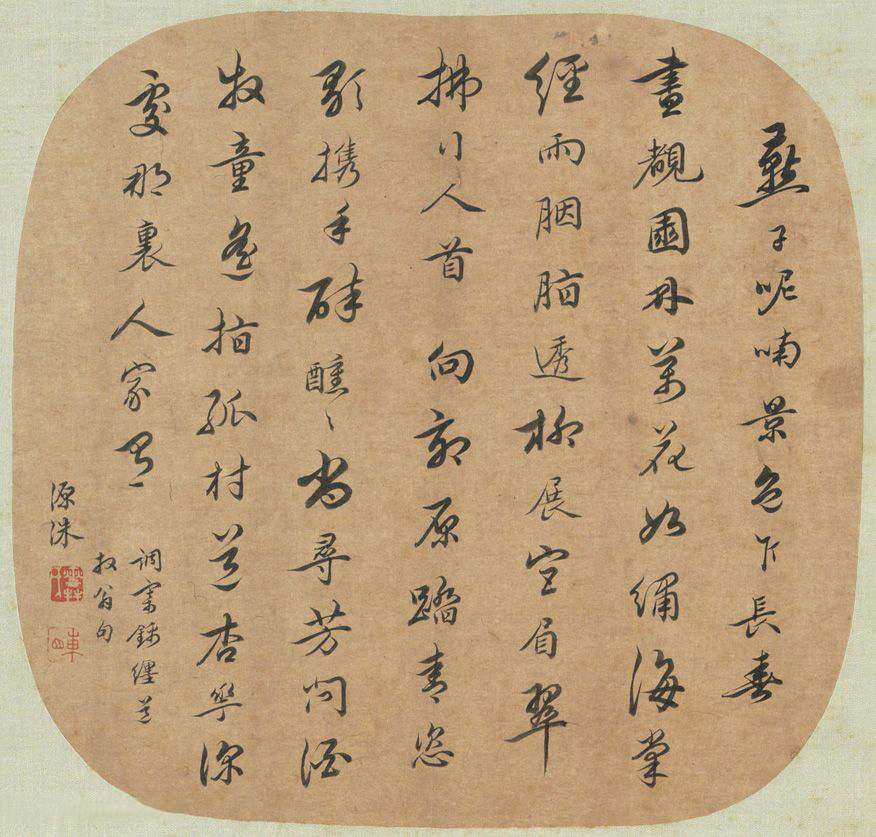 燕子呢喃景色乍長春
晝覩園林萬花如繡海棠
經雨胭脂透柳展宮眉翠
拂行人首向郊原踏青恣
歌携手醉醺〻尚尋芳問酒
牧童遙指孤村道杏華深
處那裏人家有
調寄錦纏道
放翁句
源洙